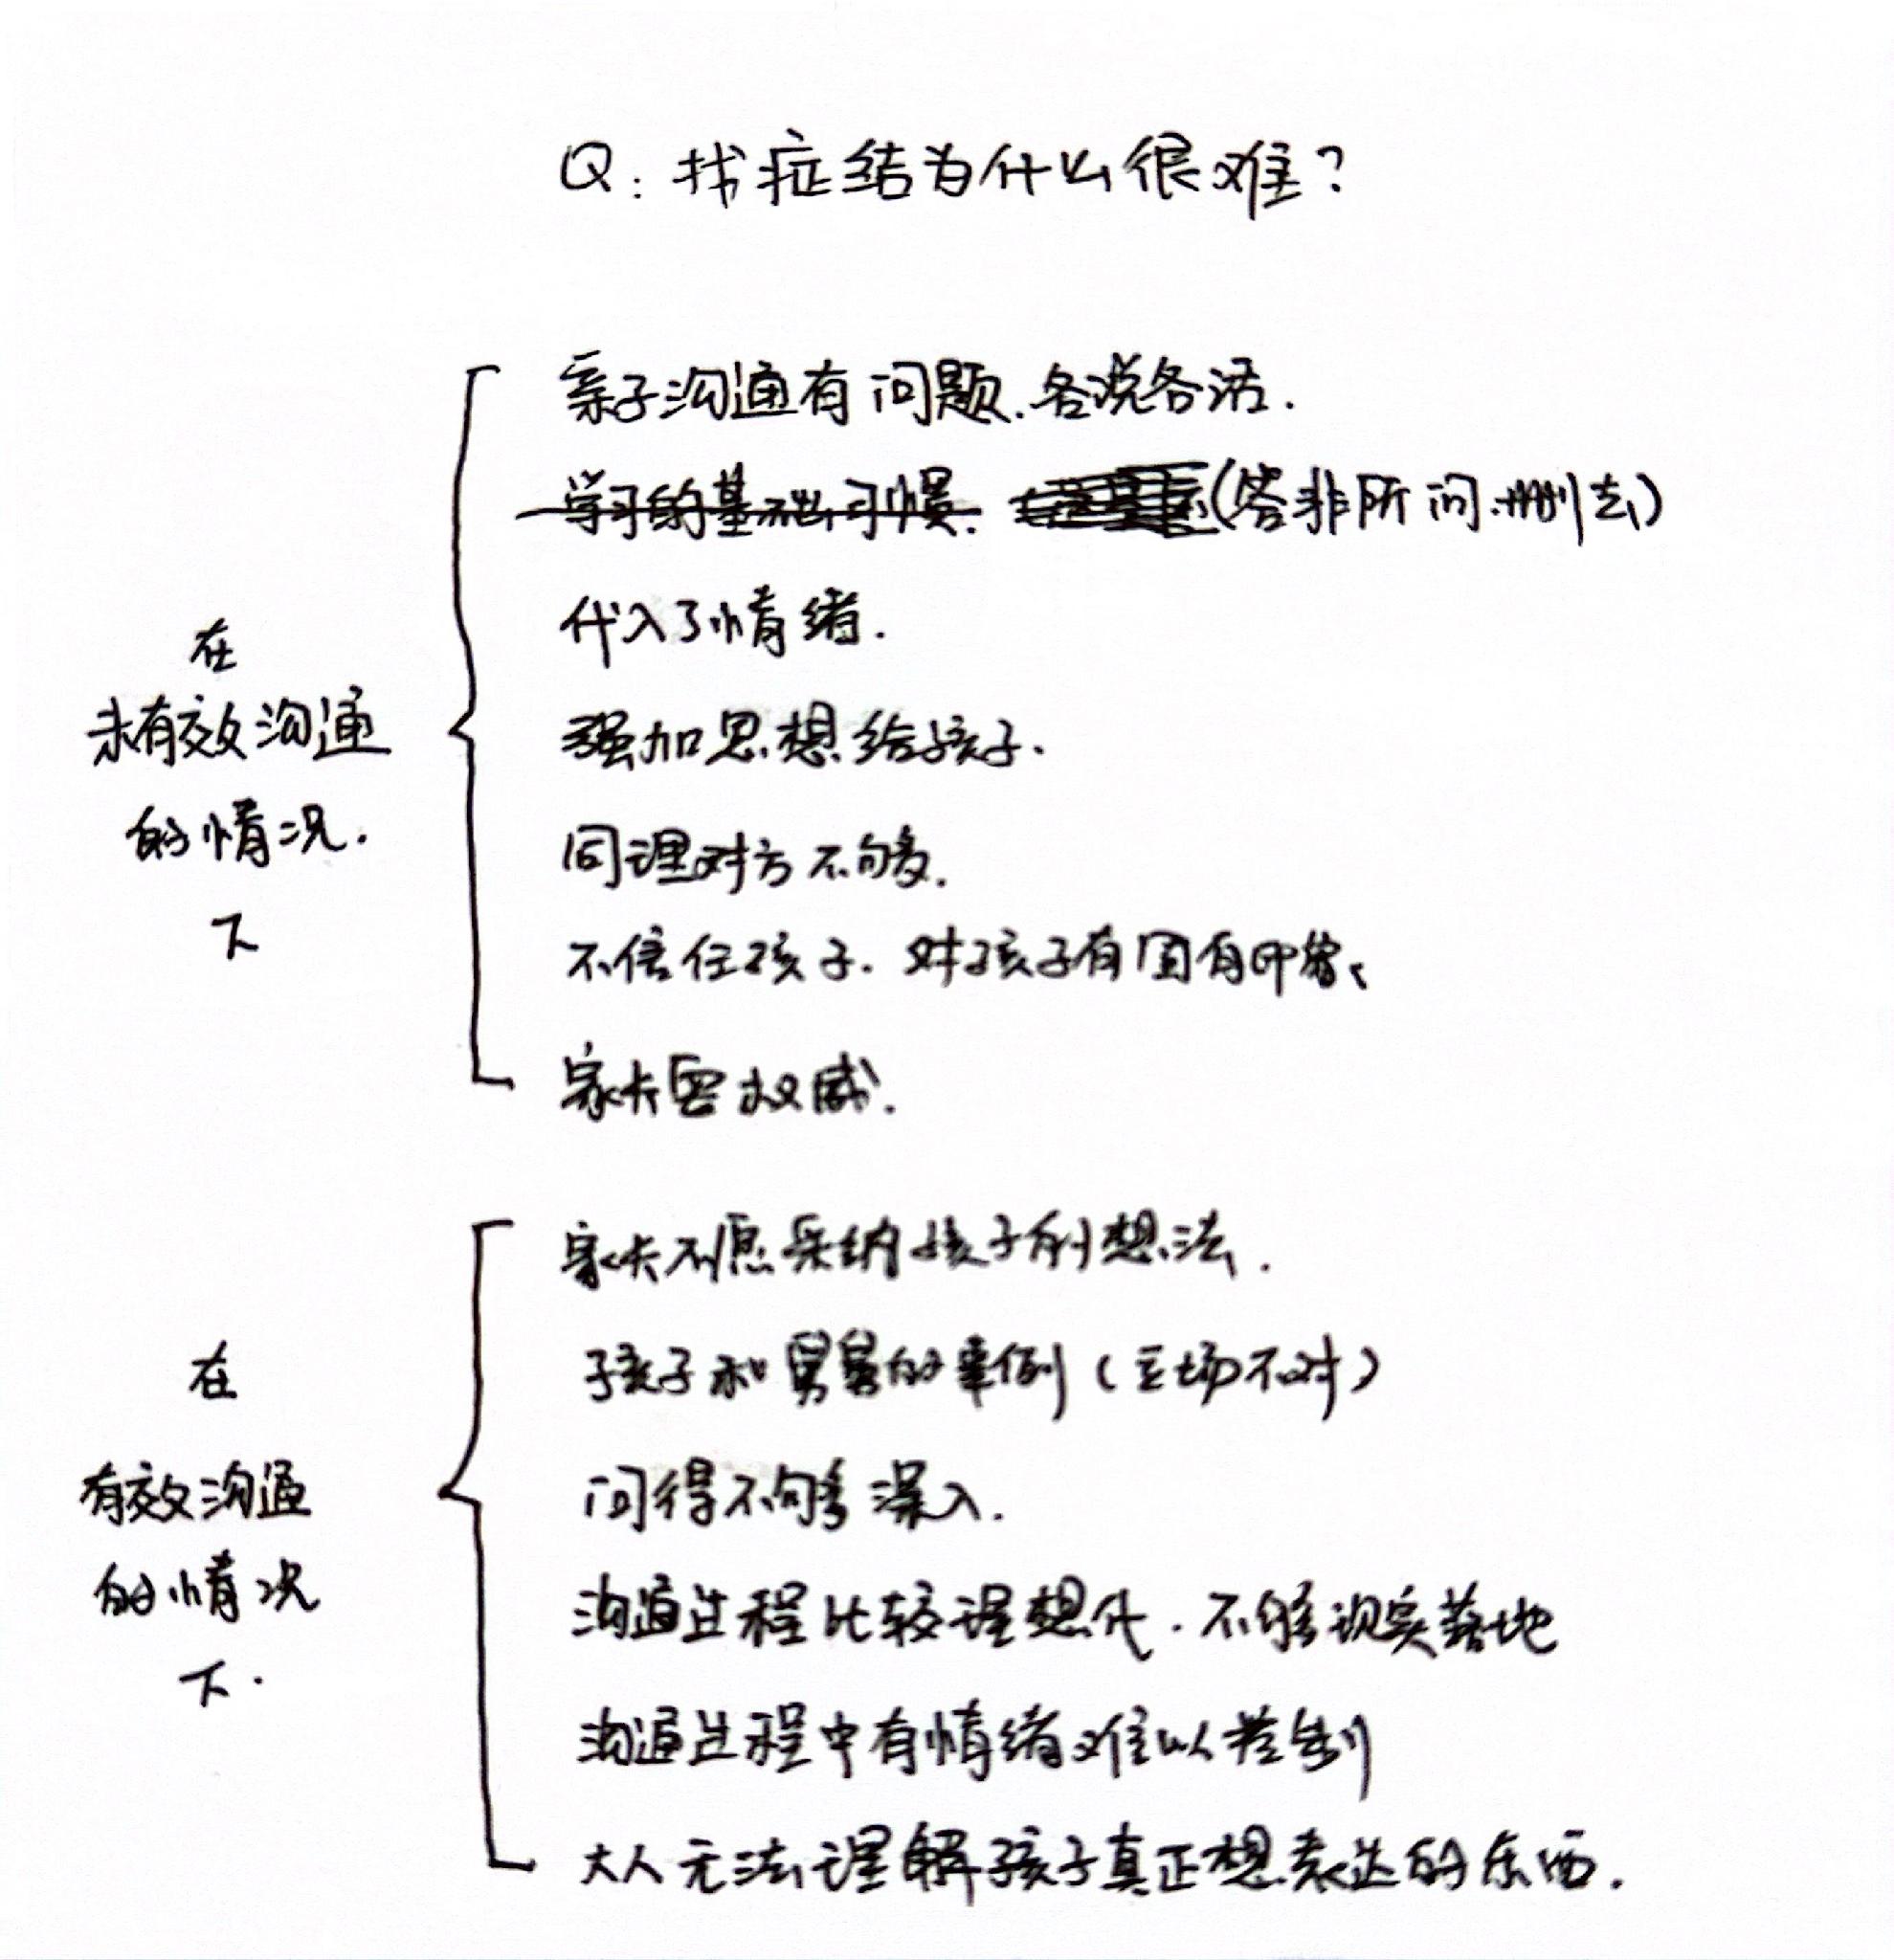 Q：找症结为什么很难？
在
未有效沟通
的情况.
下
亲子沟通有问题.各说各话.
学习的基础习惯. (答非所问.删去)
代入了情绪.
强加思想给孩子.
同理对方不够.
不信任孩子.对孩子有固有印象、
家长要权威.
在
有效沟通
的情况
下.
家长不愿采纳孩子的想法.
孩子和舅舅的案例(立场不对)
问得不够深入.
沟通过程比较理想化.不够现实落地
沟通过程中有情绪难以控制
大人无法理解孩子真正想表达的东西.